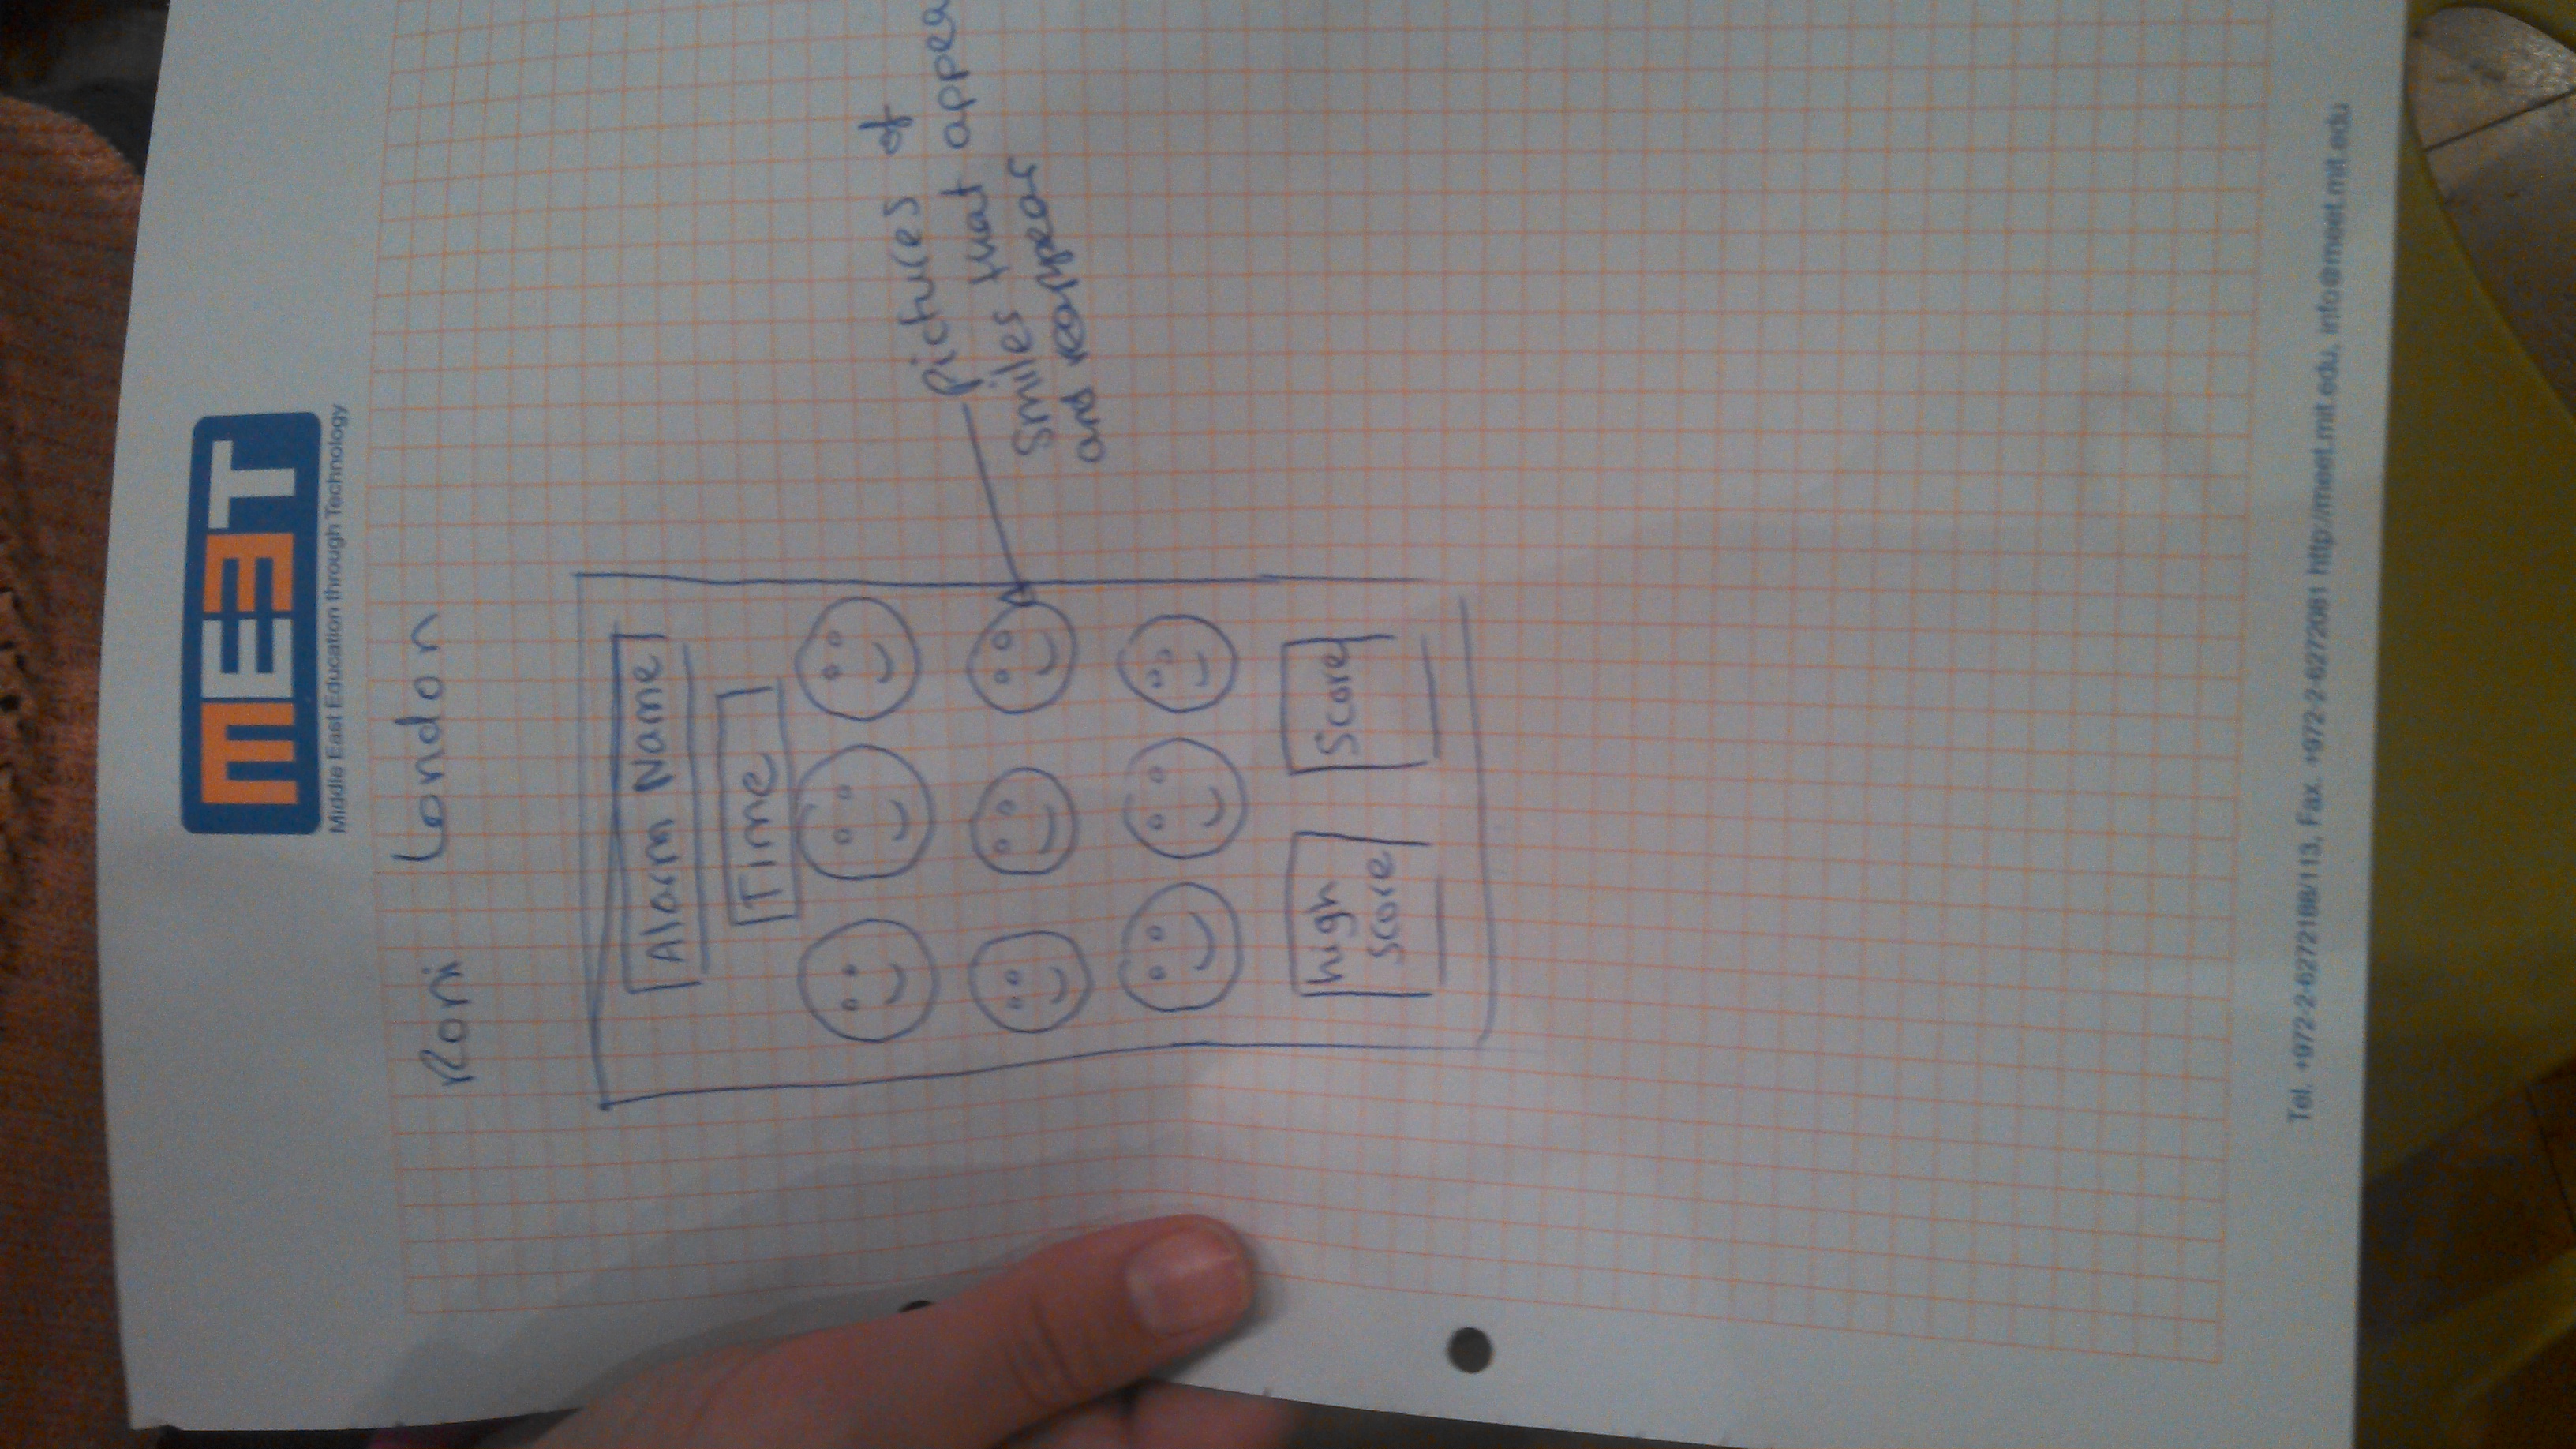 MEET
Middle East Education through Technology
Roni London
Alarm Name
Time
pictures of
smiles that appea
and reappear
high
score
Score
Tel. +972-2-6272188/113, Fax. +972-2-6272081 http://meet.mit.edu, info@meet.mit.edu